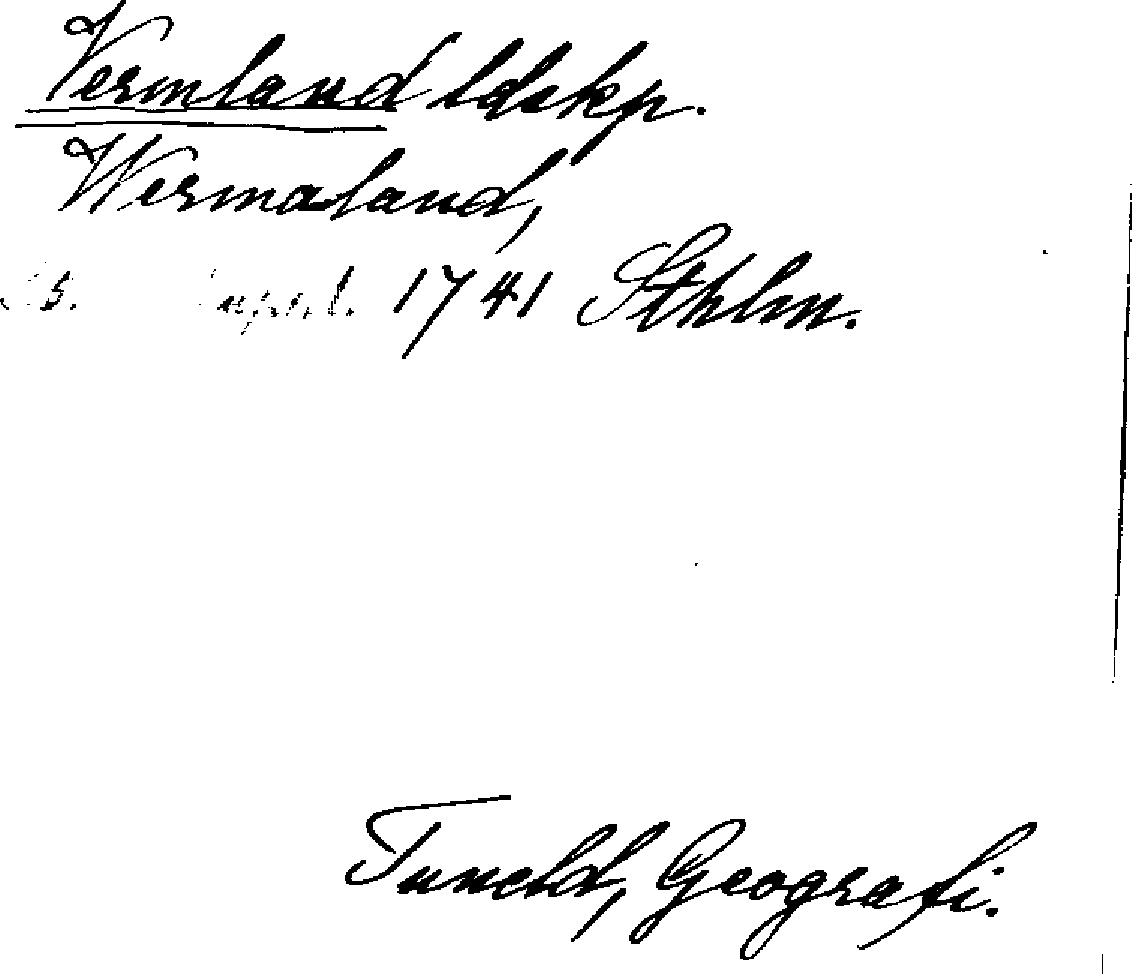 Vermland ldskp.
Wermaland,
1741 Sthlm.
Tuneld, Geografi.